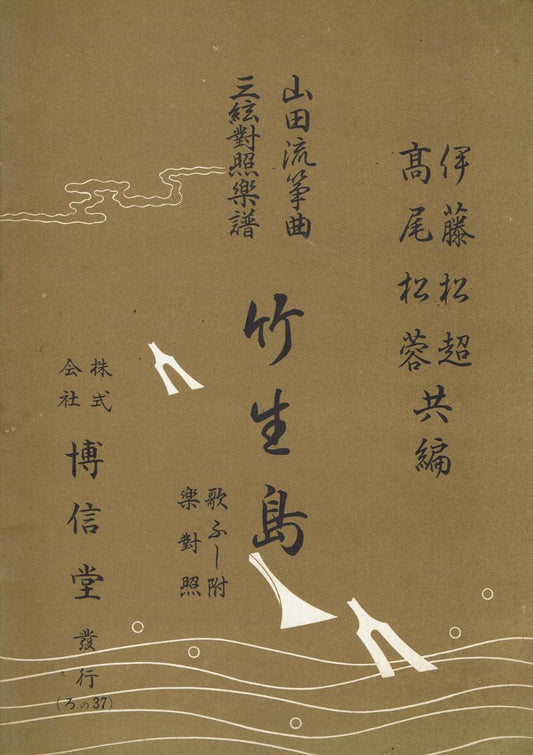 伊藤松超
髙尾松蓉
共編
山田流箏曲
三絃對照楽譜
竹生島
歌ふし附
楽對照
株式
会社
博信堂
發行
(ろの37)